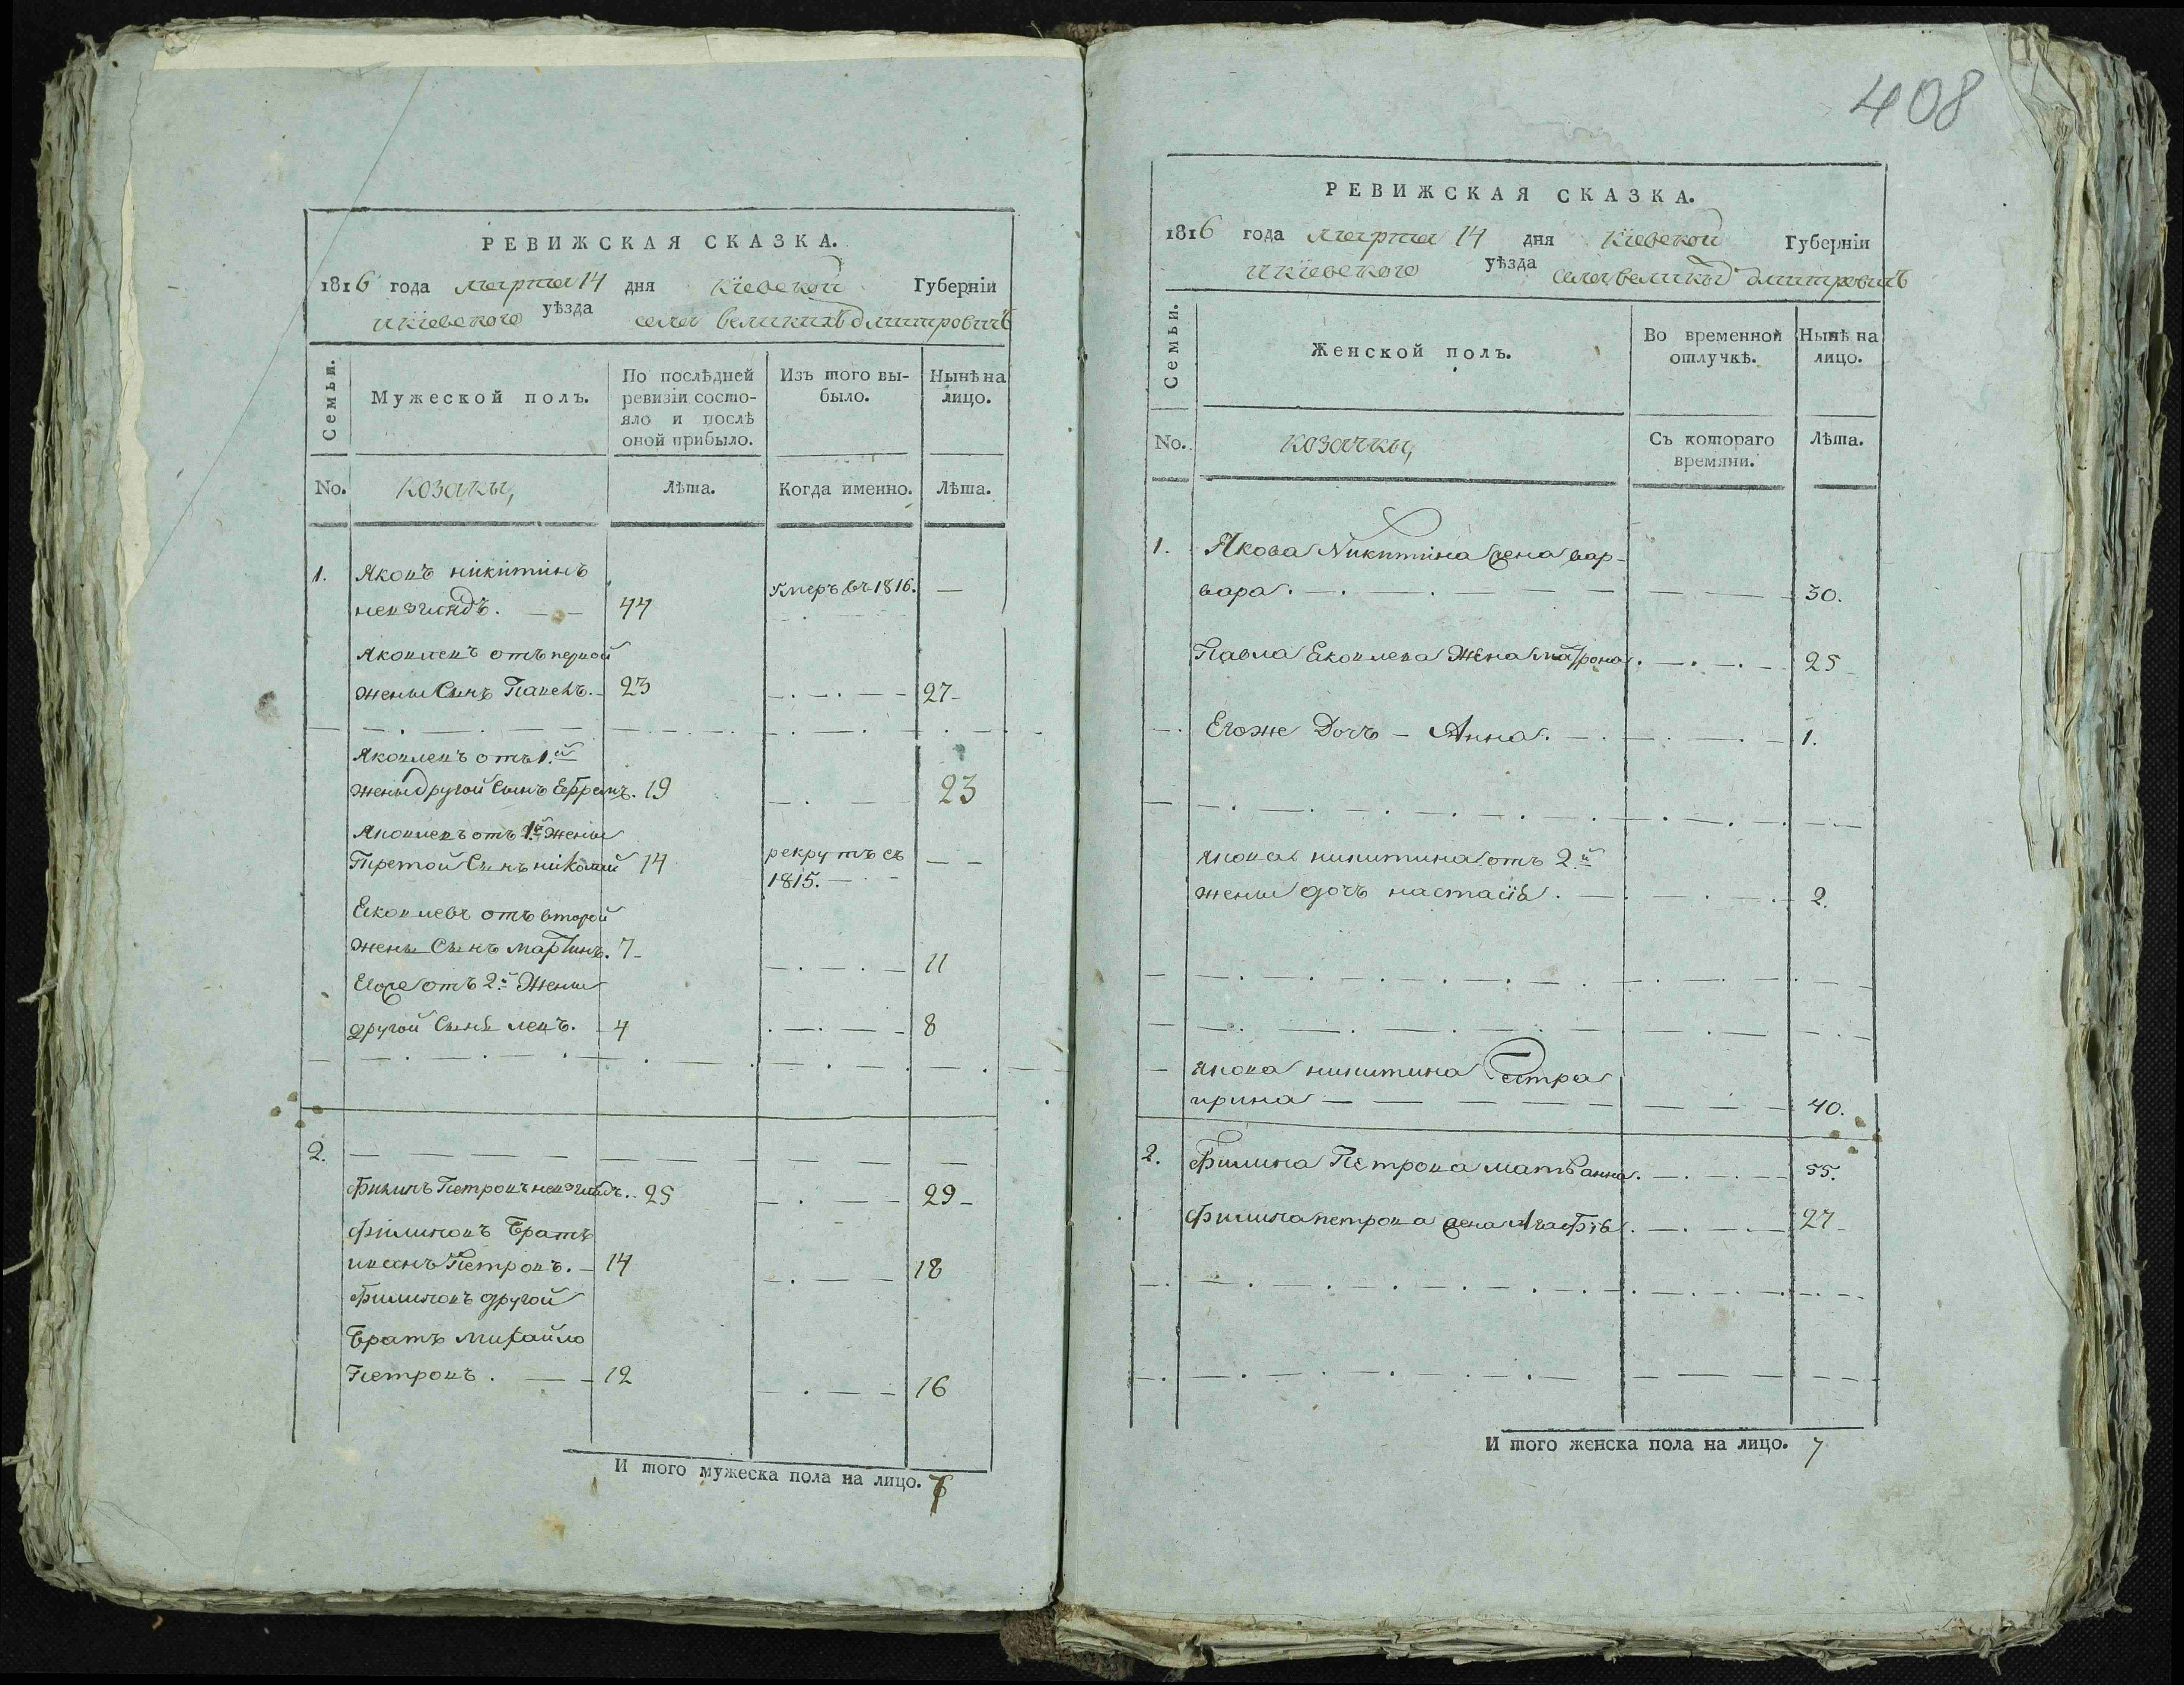 РЕВИЖСКАЯ СКАЗКА.
1816 года марта 14 дня Кіевской Губерніи
и кіевского уѣзда села великихъ дмитровичъ
Семьи.
Мужеской полъ.
По послѣдней
ревизіи состо-
яло и послѣ
оной прибыло.
Изъ того вы-
было.
Нынѣ на
лицо.
No.
козакы,
Лѣта.
Когда именно.
Лѣта.
1. Яковъ нікітінъ
44 умеръ въ 1816. —
Яковлевъ отъ первой
жены Сынъ Павелъ. 23 27
Яковлевъ отъ 1.й
жены другой Сынъ Ефремъ. 19 23
Яковлевъ отъ 1й жены
Третой Сынъ ніколай 14 рекрутъ съ
1815. —
Яковлевъ отъ второй
жены Сынъ мартинъ. 7 11
Егоже отъ 2.й Жены
другой Сынъ левъ. 4 8
2.
Филипъ Петровъ 25 29
Філиповъ Братъ
иванъ Петровъ. 14 18
Филиповъ другой
Братъ михайло
Петровъ. 12 16
И того мужеска пола на лицо.
408
РЕВИЖСКАЯ СКАЗКА.
1816 года марта 14 дня Кіевской Губерніи
и кіевского уѣзда села великих дмитровичъ
Семьи.
Женской полъ.
Во временной
отлучкѣ.
Нынѣ на
лицо.
No.
козачкы,
Съ котораго
времяни.
Лѣта.
1. Якова Никитина жена вар-
вара. 30.
Павла Яковлева Жена матрона. 25
Егоже Дочь — Анна. 1.
Якова никитина отъ 2.й
жены дочь настасія. 2.
Якова никитина сестра
ирина 40.
2. Филипа Петрова мать анна. 55.
Филипа петрова жена Агафія. 27
И того женска пола на лицо. 7